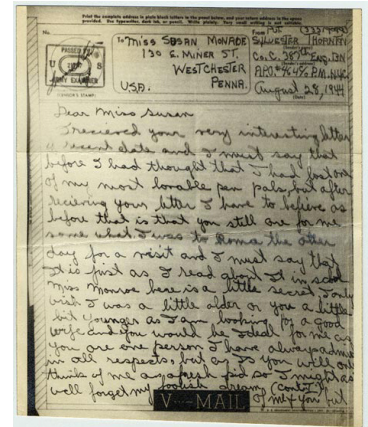 Print the complete address in plain block letters in the panel below, and your return address in the space
provided. Use typewriter, dark ink, or pencil. Write plainly. Very small writing is not suitable.
No.
PASSED BY
U S
ARMY EXAMINER
CENSOR'S STAMP
To Miss SUSAN MONROE
130 E. MINER ST.
WESTCHESTER
PENNA.
U.S.A.
From PVT
SYLVESTER THORNTON
Co. C. 387th ENG. BN
A.P.O. 464 % P.M. N.Y.C.
August 28, 1944
Dear Miss Susan
I recieved your very interesting letter
recent date and I must say that
before I had thought that I had lost one
of my most lovable pen pals, but after
recieving your letter I have to belive as
before that is that you still are for me
some what I was to Roma the other
day for a visit and I must say that
it is just as I read about it in scool
Miss Monroe here is a little secret I only
wish I was a little older or you a little
bit younger as I am looking for a good
wife and you would be Ideal for me as
you are one person I have always admired
in all respects, but as is you will only
think of me as a fresh kid so I might as
well forget my foolish dreams (con't)
of me x you but
V···—MAIL